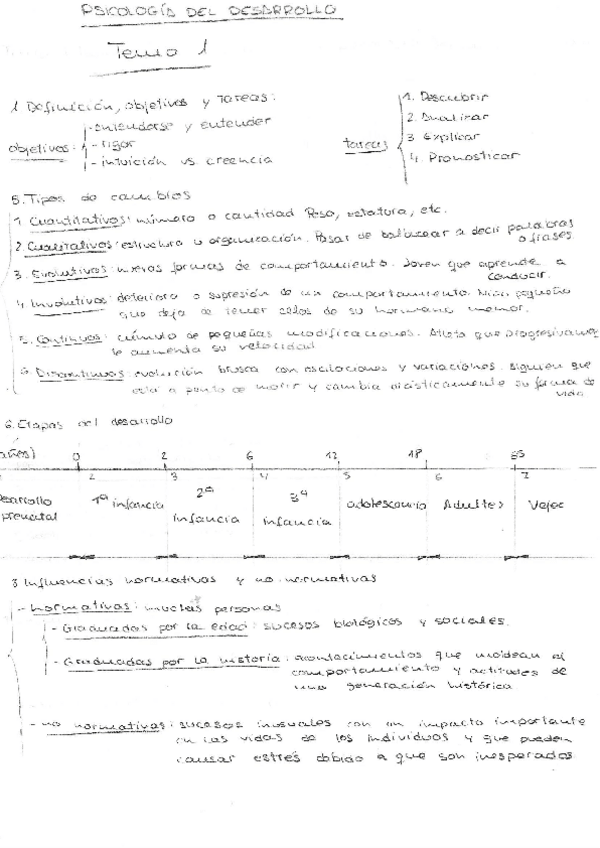 PSICOLOGÍA DEL DESARROLLO
Tema 1
1 Definición, objetivos y tareas:
objetivos:
- entenderse y entender
- rigor
- intuición vs creencia
tareas
1. Descubrir
2. Analizar
3 Explicar
4. Pronosticar
5. Tipos de cambios
1. Cuantitativos: número o cantidad Peso, estatura, etc.
2. Cualitativos: estructura u organización. Pasar de balbucear a decir palabras
o frases
3. Evolutivos: nuevas formas de comportamiento. Joven que aprende a
conducir.
4. Involutivos: deterioro o supresión de un comportamiento. Niño pequeño
que deja de tener celos de su hermano menor.
5. Continuos: cúmulo de pequeñas modificaciones. Atleta que
le aumenta su velocidad
6. Discontinuos: evolución brusca con oscilaciones y variaciones. Alguien que
está a punto de morir y cambia drásticamente su forma de
vida
6. Etapas del desarrollo
años) 0 2 6 12 18 65
2 3 4 5 6 7
desarrollo
prenatal
1ª infancia
2ª
infancia
3ª
infancia
adolescencia
Adultez
Vejez
8 Influencias normativas y no normativas
- normativas: muchas personas
- Graduadas por la edad: sucesos biológicos y sociales.
- Graduadas por la historia: acontecimientos que moldean el
comportamiento y actitudes de
una generación histórica
- no normativas: sucesos inusuales con un impacto importante
en las vidas de los individuos y que pueden
causar estrés debido a que son inesperados